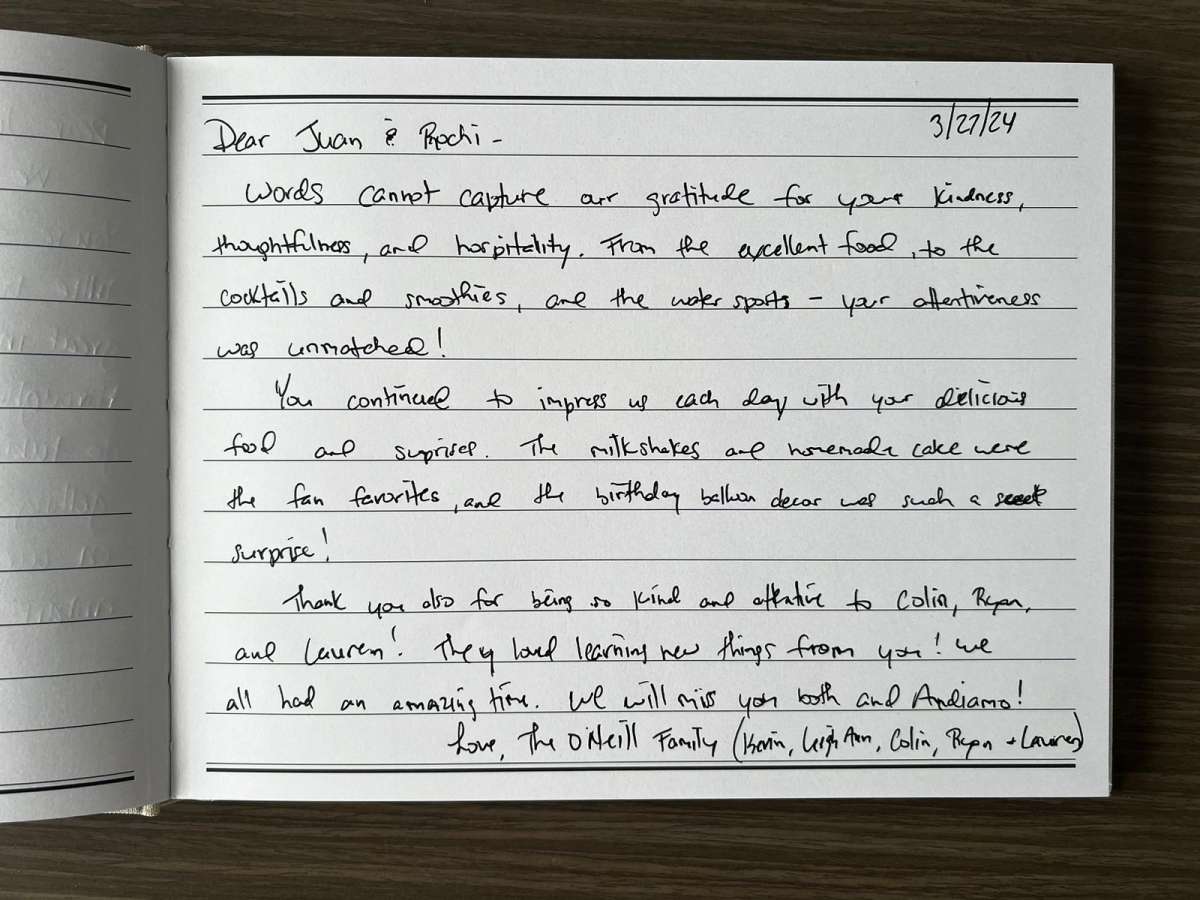 3/27/24
Dear Juan & Rochi -
Words cannot capture our gratitude for your kindness,
thoughtfulness, and hospitality. From the excellent food, to the
cocktails and smoothies, and the water sports - your attentiveness
was unmatched!
You continued to impress us each day with your delicious
food and surprises. The milkshakes and homemade cake were
the fan favorites, and the birthday balloon decor was such a sweet
surprise!
Thank you also for being so kind and attentive to Colin, Ryan,
and Lauren! They loved learning new things from you! We
all had an amazing time. We will miss you both and Andiamo!
Love, The O'Neill Family (Kevin, Leigh Ann, Colin, Ryan + Lauren)